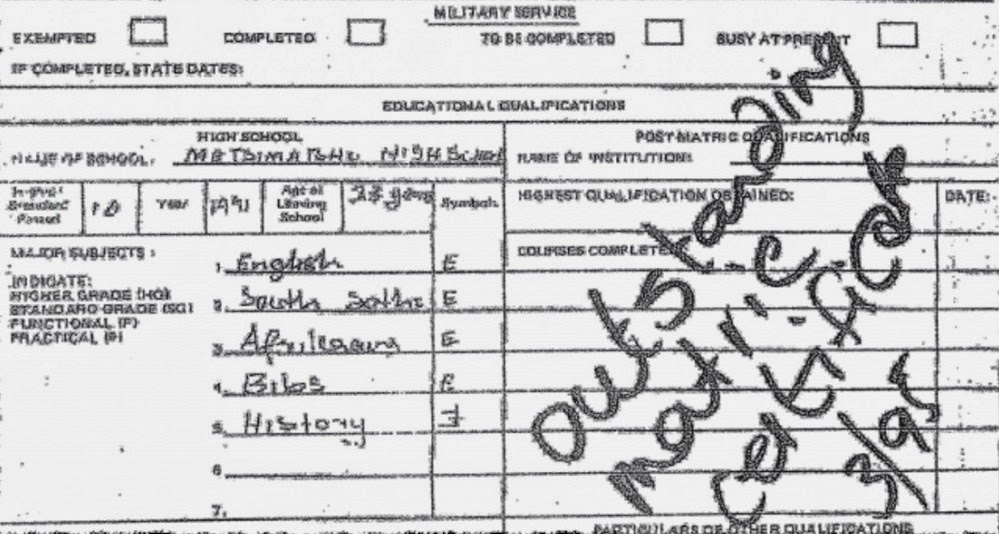 MILITARY SERVICE
EXEMPTED COMPLETED TO BE COMPLETED BUSY AT PRESENT
IF COMPLETED, STATE DATES:
EDUCATIONAL QUALIFICATIONS
HIGH SCHOOL POST-MATRIC QUALIFICATIONS
NAME OF SCHOOL. METSIMATSHU HIGH SCHOOL NAME OF INSTITUTION:
Highest Standard Passed 10 Year Age at Leaving School Symbols HIGHEST QUALIFICATION OBTAINED: DATE:
MAJOR SUBJECTS: COURSES COMPLETE
INDICATE:
HIGHER GRADE (HG)
STANDARD GRADE (SG)
FUNCTIONAL (F)
PRACTICAL (P)
1. English E
2. South Sotho E
3. Afrikaans E
4. Bibs E
5. History
6
7.
Outstanding
matric
certificate
3/95
PARTICULARS OF OTHER QUALIFICATIONS